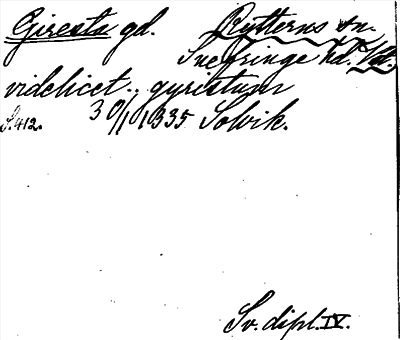 Giresta gd. Rytterns sn.
Snefringe hd. Vtl.
videlicet . . gyristum
S. 412. 30/11 1335 Solvik.
Sv. dipl. IV.